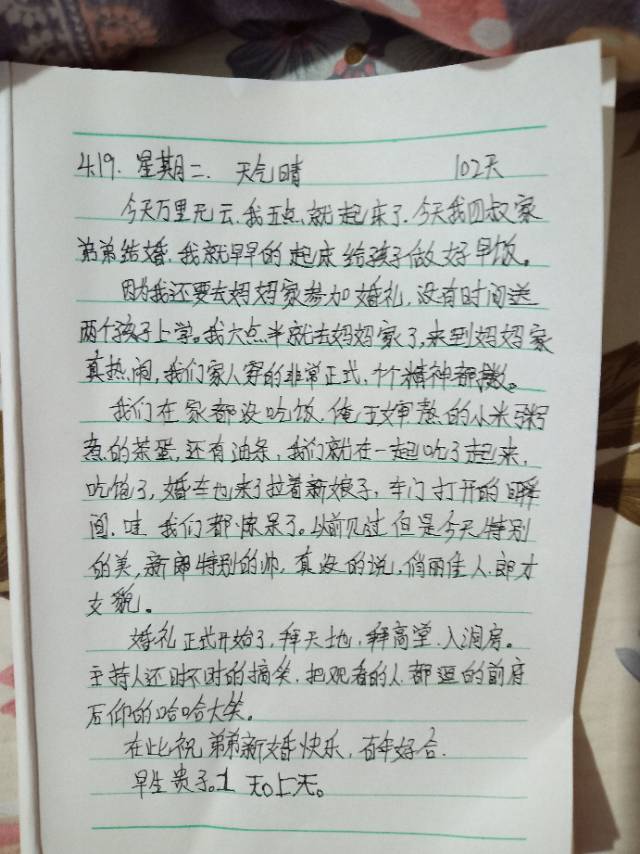 4.19. 星期二. 天气晴 102天
今天万里无云.我五点就起来了.今天我四叔家
弟弟结婚.我就早早的起床给孩子做好早饭。
因为我还要去妈妈家参加婚礼,没有时间送
两个孩子上学。我六点半就去妈妈家了,来到妈妈家
真热闹,我们家人穿的非常正式,个个精神都
我们在家都没吃饭.俺 熬的小米粥
煮的茶蛋,还有油条,我们就在一起吃了起来,
吃饱了,婚车也来了拉着新娘子,车门打开的瞬
间.哇 我们都惊呆了。以前见过但是今天特别
的美,新郎特别的帅,真没的说,俏丽佳人.郎才
女貌。
婚礼正式开始了,拜天地,拜高堂.入洞房。
主持人还时不时的搞笑,把观看的人都逗的前府
后仰的哈哈大笑。
在此祝弟弟新婚快乐,百年好合.
早生贵子。